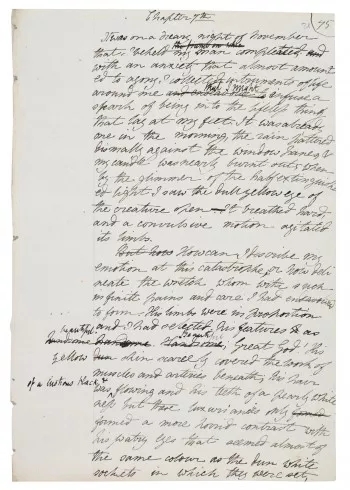 75
Chapter 7th
It was on a dreary night of November
that I beheld the frame on which my man completed and
with an anxiety that almost amount
ed to agony I collected instruments of life
around me that I might infuse a
spark of being into the lifeless thing
that lay at my feet. It was already
one in the morning, the rain pattered
dismally against the window panes &
my candle was nearly burnt out, when
by the glimmer of the half extinguish
ed light I saw the dull yellow eye of
the creature open It breathed hard,
and a convulsive motion agitated
its limbs.
But how How can I describe my
emotion at this catastrophe, or how deli
neate the wretch whom with such
infinite pains and care I had endeavoured
to form. His limbs were in proportion
and I had selected his features as
beautiful handsome handsome Beautiful; Great God! His
yellow dun skin scarcely covered the work of
muscles and arteries beneath; his hair
of a lustrous black &
was flowing and his teeth of a pearly white
ness but these luxuriances only formed
formed a more horrid contrast with
his watry eyes that seemed almost of
the same colour as the dun white
sockets in which they were set,